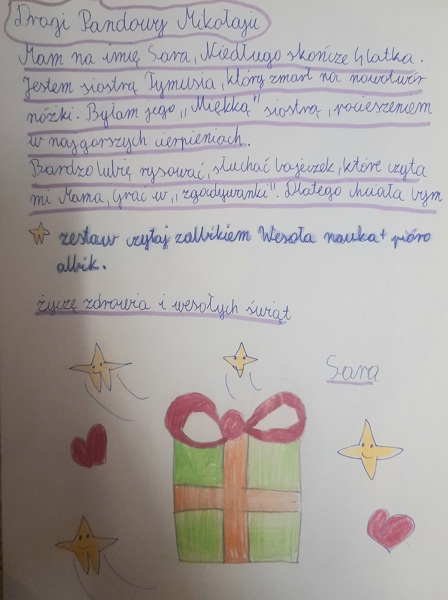 Drogi Pandowy Mikołaju
Mam na imię Sara, Niedługo skończę 4 latka.
Jestem siostrą Tymusia, który zmarł na nowotwór
nóżki. Byłam jego ,,Miękką" siostrą, pocieszeniem
w najgorszych cierpieniach.
Bardzo lubię rysować, słuchać bajeczek, które czyta
mi Mama, Grać w ,,zgadywanki". Dlatego chciała bym
zestaw czytaj z albikiem Wesoła nauka + pióro
albik.
życzę zdrowia i wesołych świąt
Sara